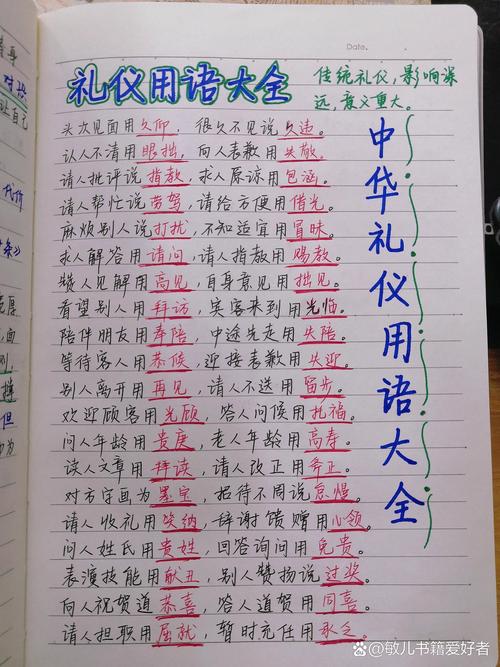 Date.
礼仪用语大全
传统礼仪,影响深
远,意义重大。
头次见面用久仰,很久不见说久违。
认人不清用眼拙,向人表歉用失敬。
请人批评说指教,求人原谅用包涵。
请人帮忙说劳驾,请给方便用借光。
麻烦别人说打扰,不知适宜用冒昧。
求人解答用请问,请人指教用赐教。
赞人见解用高见,自身意见用拙见。
看望别人用拜访,宾客来到用光临。
陪伴朋友用奉陪,中途先走用失陪。
等待客人用恭候,迎接表歉用失迎。
别人离开用再见,请人不送用留步。
欢迎顾客用光顾,答人问候用托福。
问人年龄用贵庚,老人年龄用高寿。
读人文章用拜读,请人改正用斧正。
对方字画为墨宝,招待不周说怠慢。
请人收礼用笑纳,辞谢馈赠用心领。
问人姓氏用贵姓,回答询问用免贵。
表演技能用献丑,别人赞扬说过奖。
向人祝贺道恭喜,答人道贺用同喜。
请人担职用屈就,暂时充任用承乏。
中华礼仪用语大全
头条 @敏儿书籍爱好者